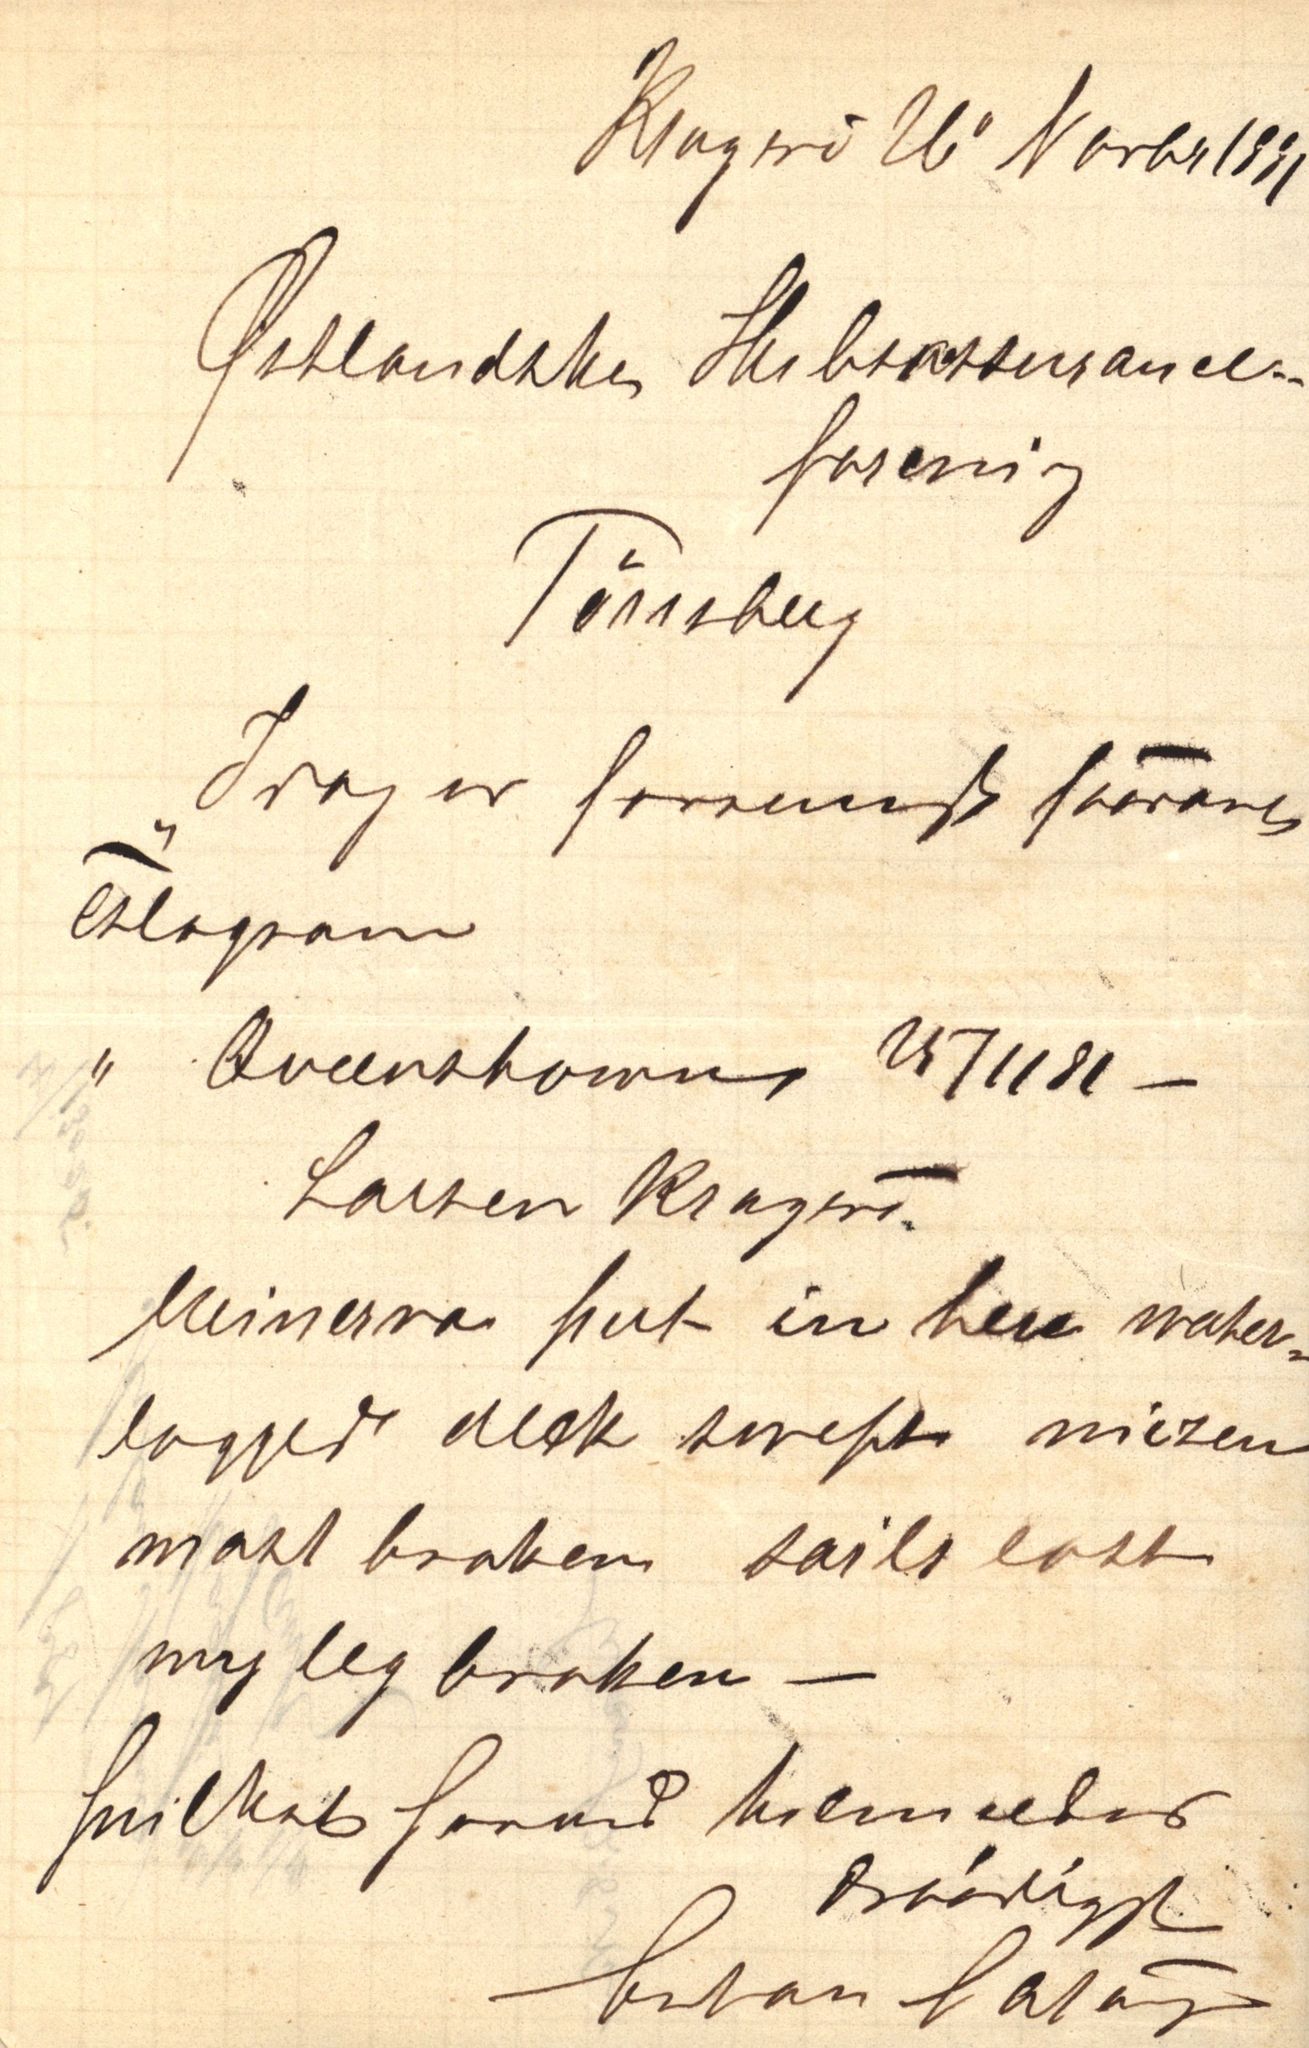 Kragerö 26 Novbr 1881
Østlandske Skibsassurance-
forenig
Tönsberg
Idag er
Telegram
" Queenstown 25/11 81 —
Larsen Kragerö.
Minerva put in here water-
logged deck swept mizen
mast broken sails lost
my leg broken —
hvilket
ærbödigst